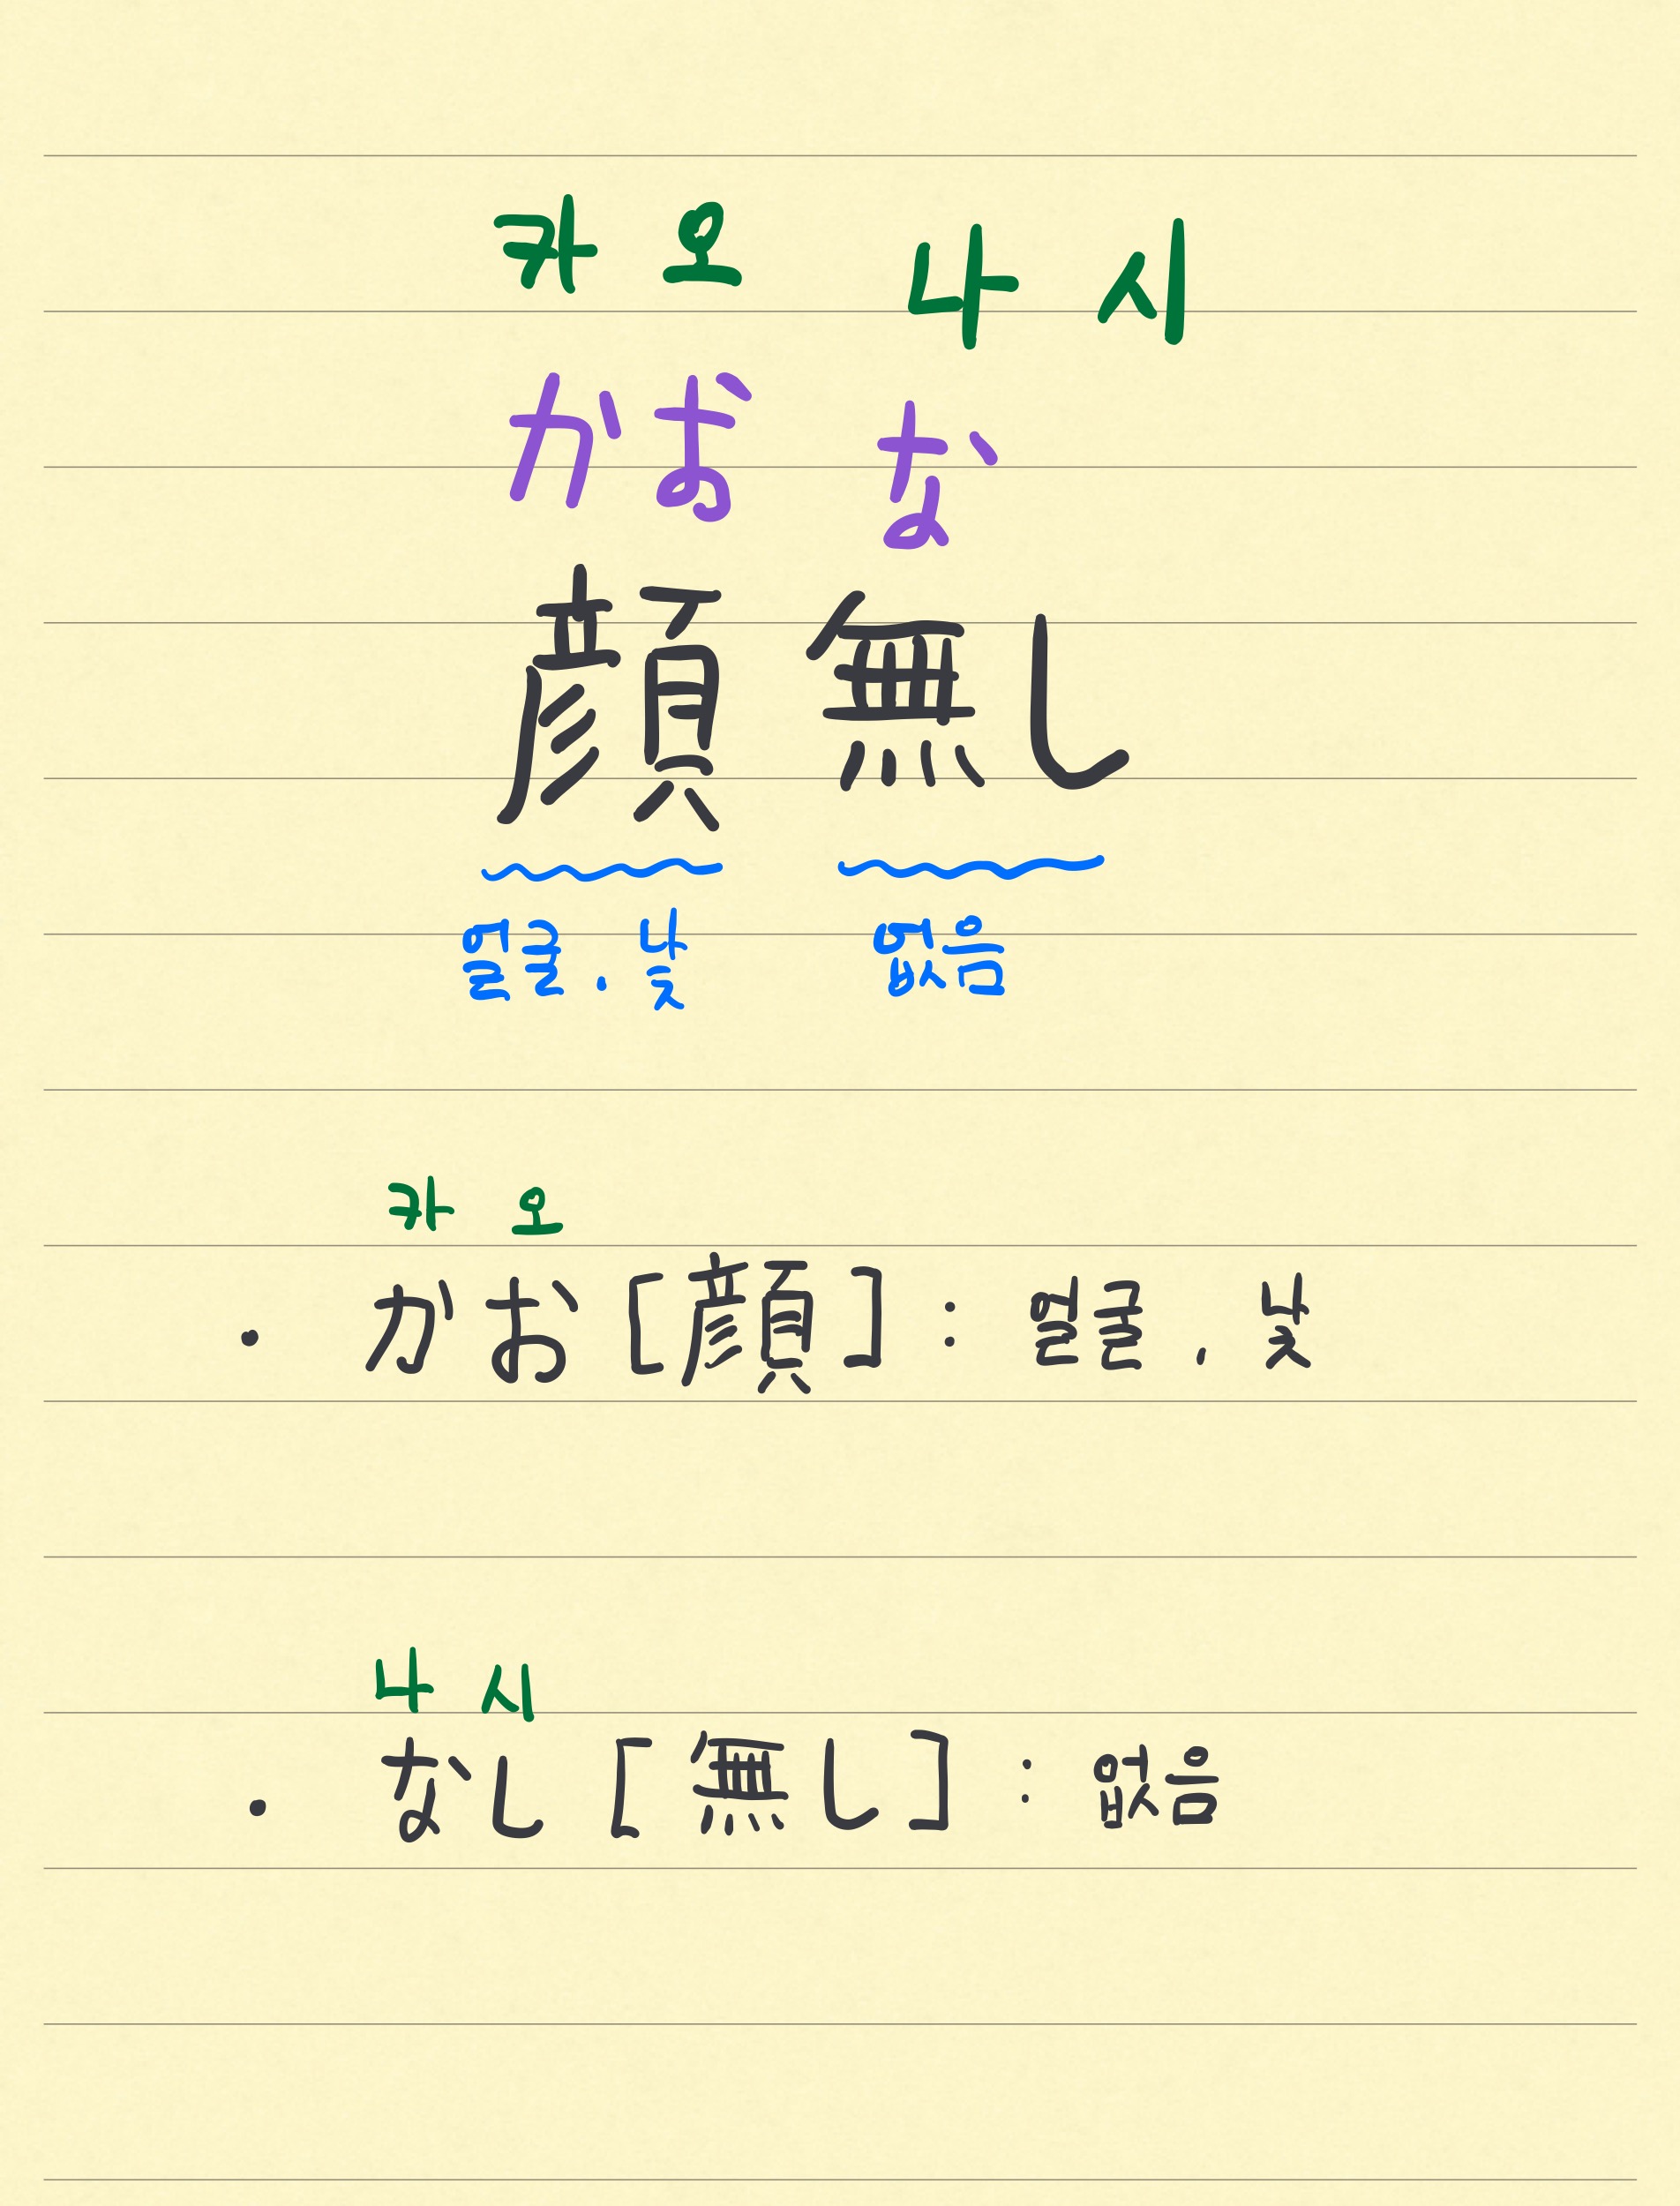 카오 나시
かお な
顔 無し
얼굴. 낯 없음
카오
· かお [顔] : 얼굴, 낯
나시
· なし [無し] : 없음